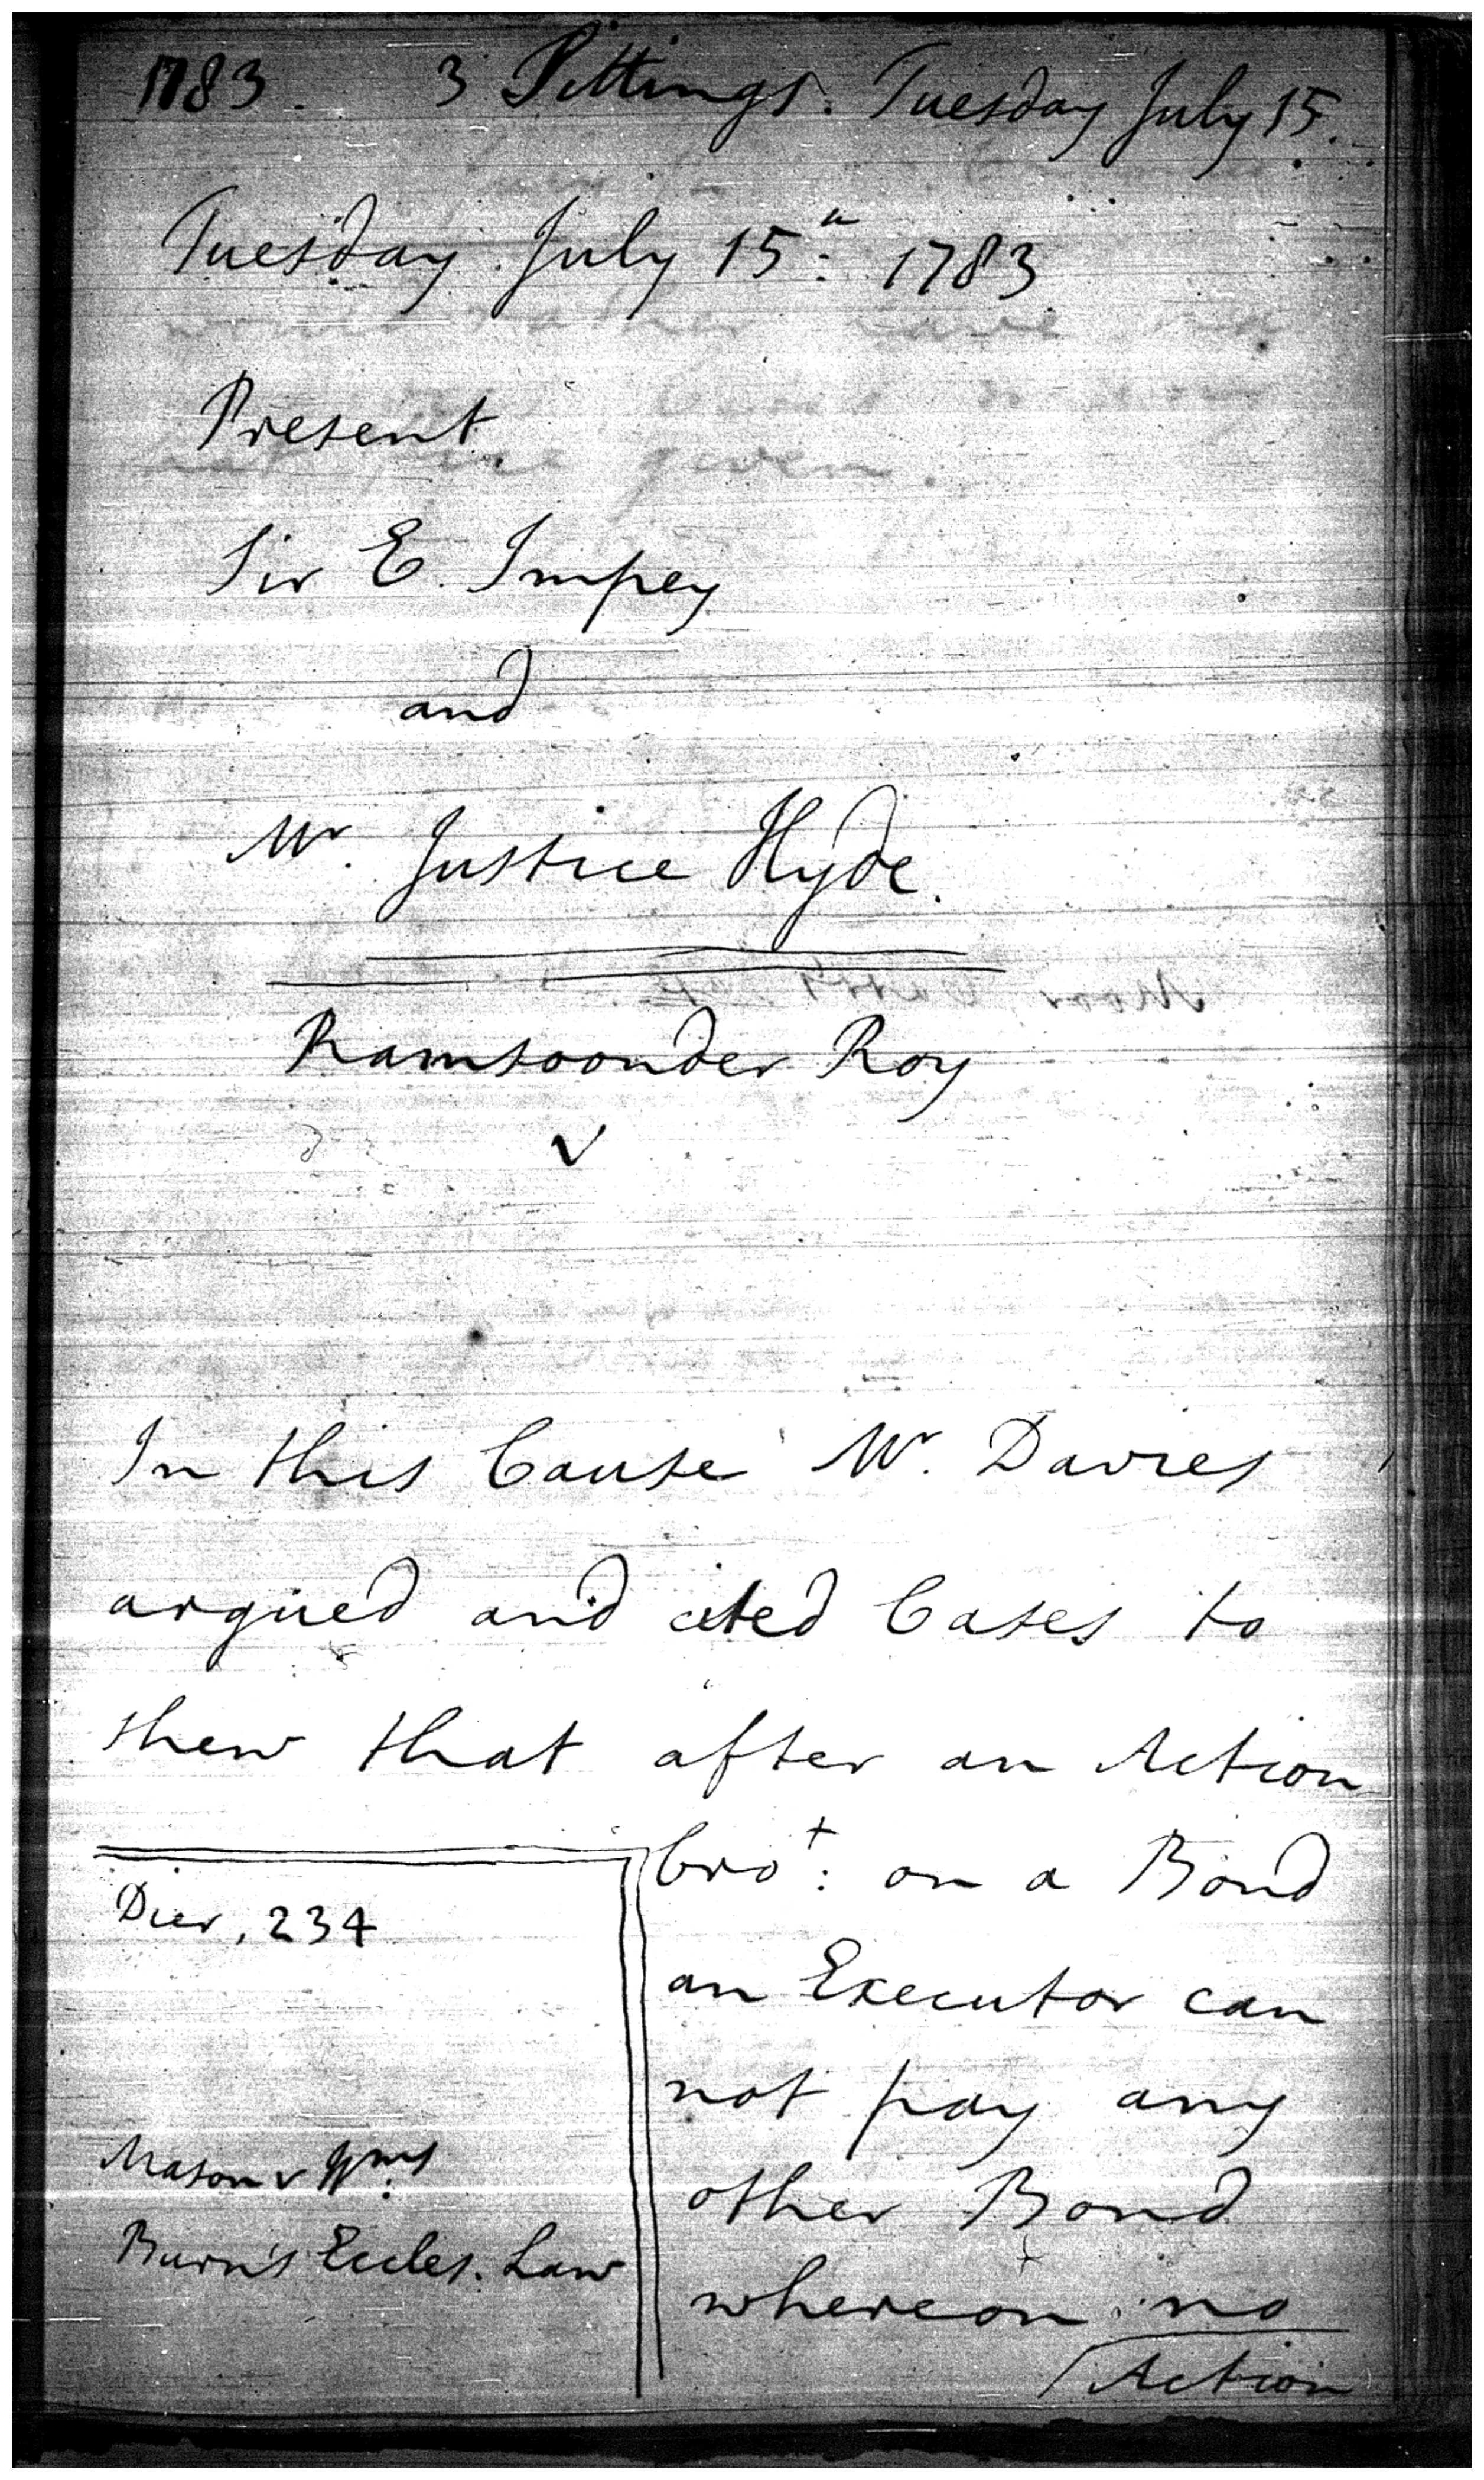 1783. 3 Sittings. Tuesday July 15.
Tuesday July 15.th 1783
Present
Sir E. Impey
and
Mr. Justice Hyde.
Ramsoonder Roy
v
In this Cause Mr. Davies
argued and cited Cases to
shew that after an Action
bro.t: on a Bond
an Executor can
not pay any
other Bond
whereon no
Action
Dier, 234
Mason v Wms:
Burn's Eccles. Law